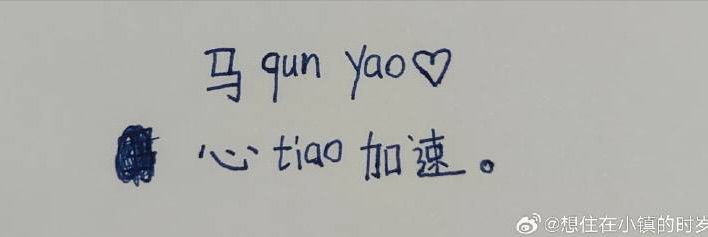 马 qun yao♡
心 tiao 加速。
@想住在小镇的时岁